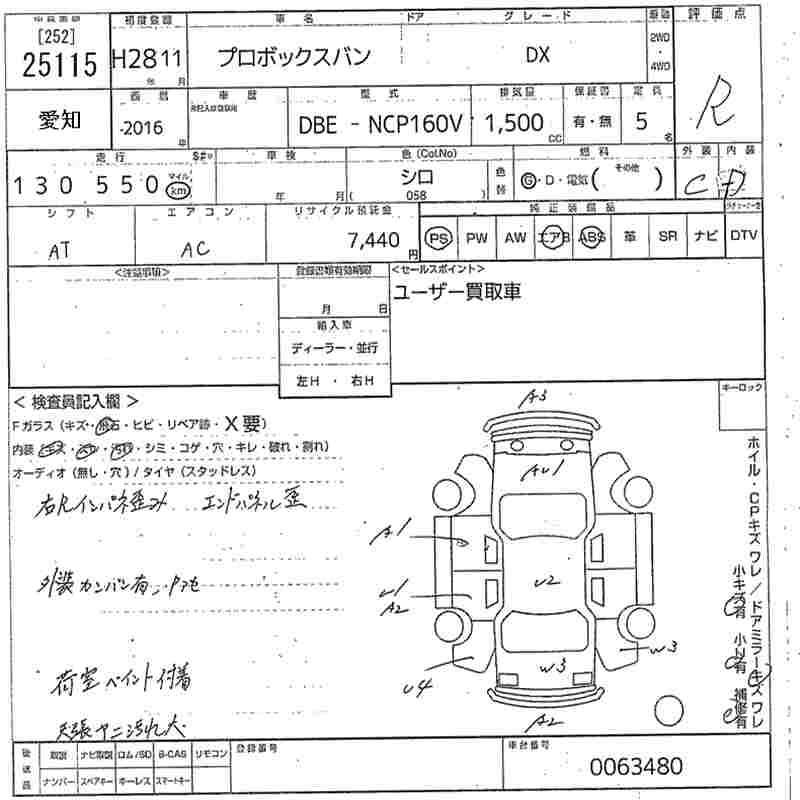 車名 ドア グレード 評価点
[252]
25115
初度登録
H28 11
年 月
プロボックスバン
DX
2WD
・
4WD
R
愛知
西暦
-2016
年
車歴
型式
DBE - NCP160V
排気量
1,500
CC
保証書
有・無
定員
5
名
走行
130 550
マイル
km
車検
年 月
色(Col.No)
シロ
( 058 )
色替
燃料
G・D・電気( その他 )
外装 内装
C D
シフト
AT
エアコン
AC
リサイクル預託金
7,440 円
純正装備品
PS PW AW エアB ABS 革 SR ナビ DTV
<注意事項>
登録書類有効期限
月 日
輸入車
ディーラー・並行
左H ・ 右H
<セールスポイント>
ユーザー買取車
キーロック
< 検査員記入欄 >
Fガラス(キズ・飛石・ヒビ・リペア跡・X要)
内装・シミ・コゲ・穴・キレ・破れ・割れ)
オーディオ(無し・穴)/タイヤ(スタッドレス)
右Rインパネ歪み エンドパネル歪
外装カンバン有
荷室ペイント付着
天張ヤニ汚れ大
A3
AU1
A1
U1
A2
U2
W3
W3
U4
A2
ホイル・CPキズ ワレ/ドアミラーキズ ワレ
小キズ有 小凹有 補修有
後送品
取説 ナビ取説 ロム/SD B-CAS リモコン
ナンバー スペアキー キーレス スマートキー
登録番号
車台番号
0063480